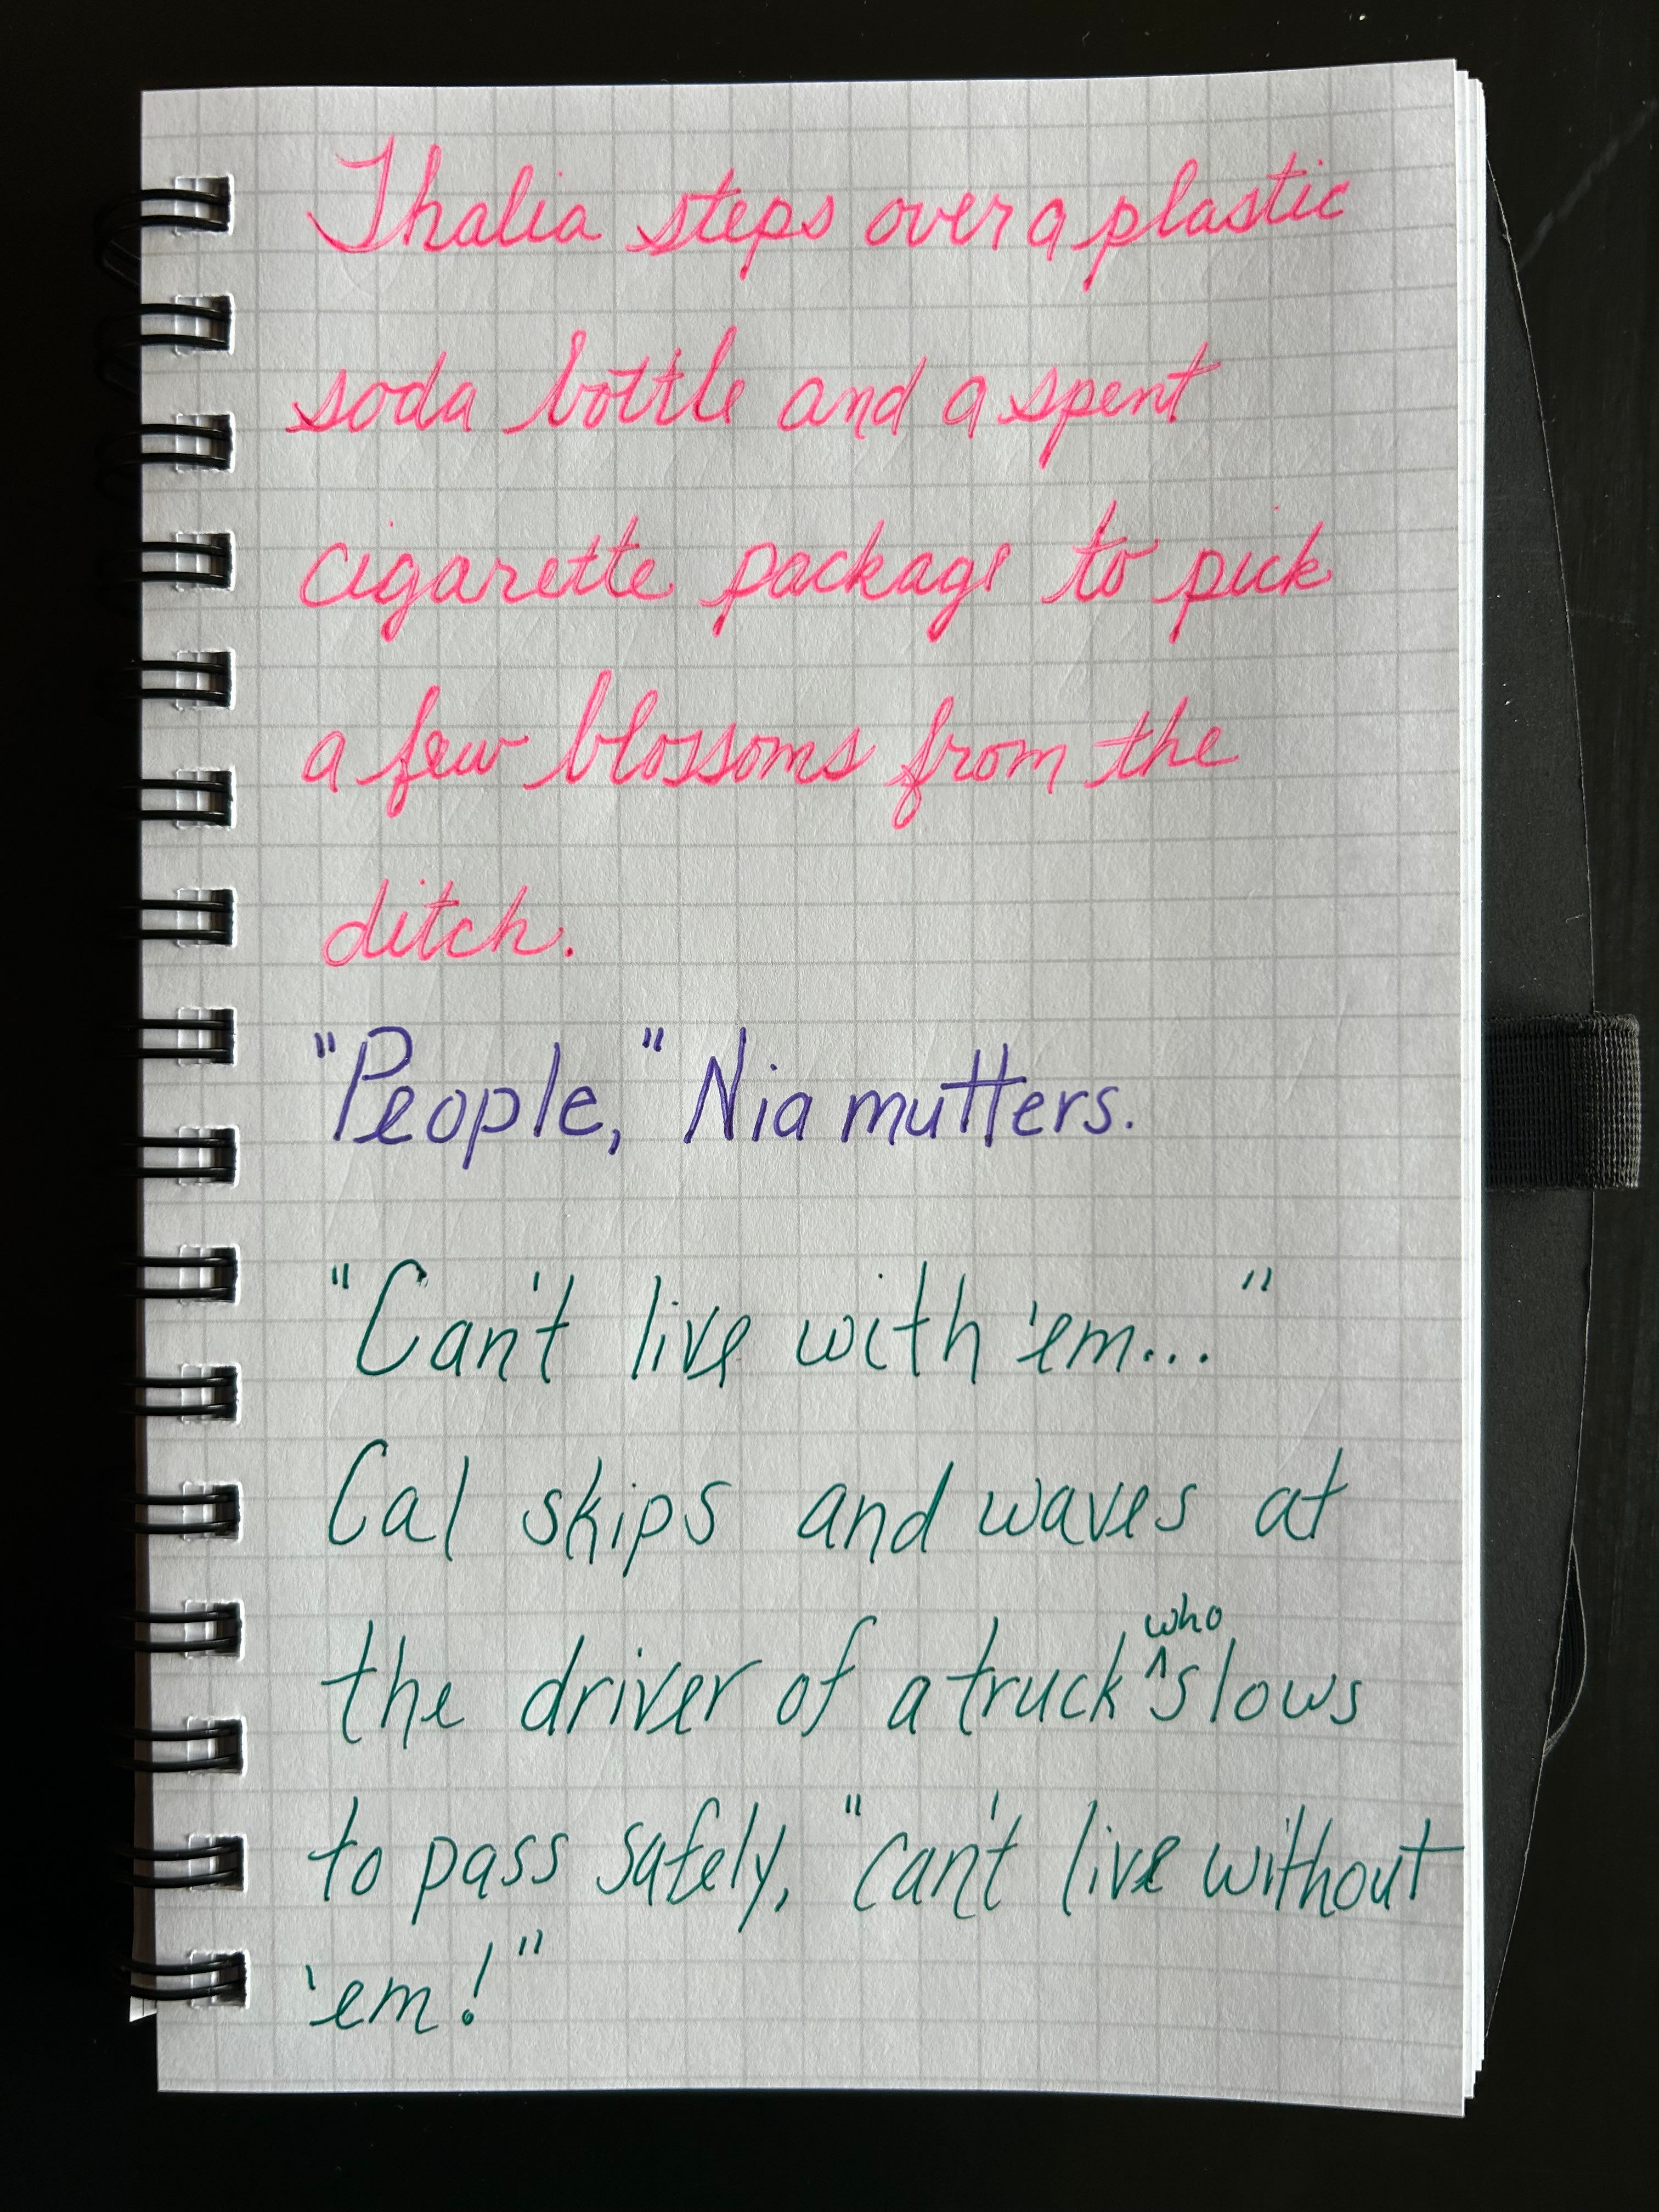 Thalia steps over a plastic
soda bottle and a spent
cigarette package to pick
a few blossoms from the
ditch.
"People," Nia mutters.
"Can't live with 'em..."
Cal skips and waves at
the driver of a truck ^who slows
to pass safely, "can't live without
'em!"